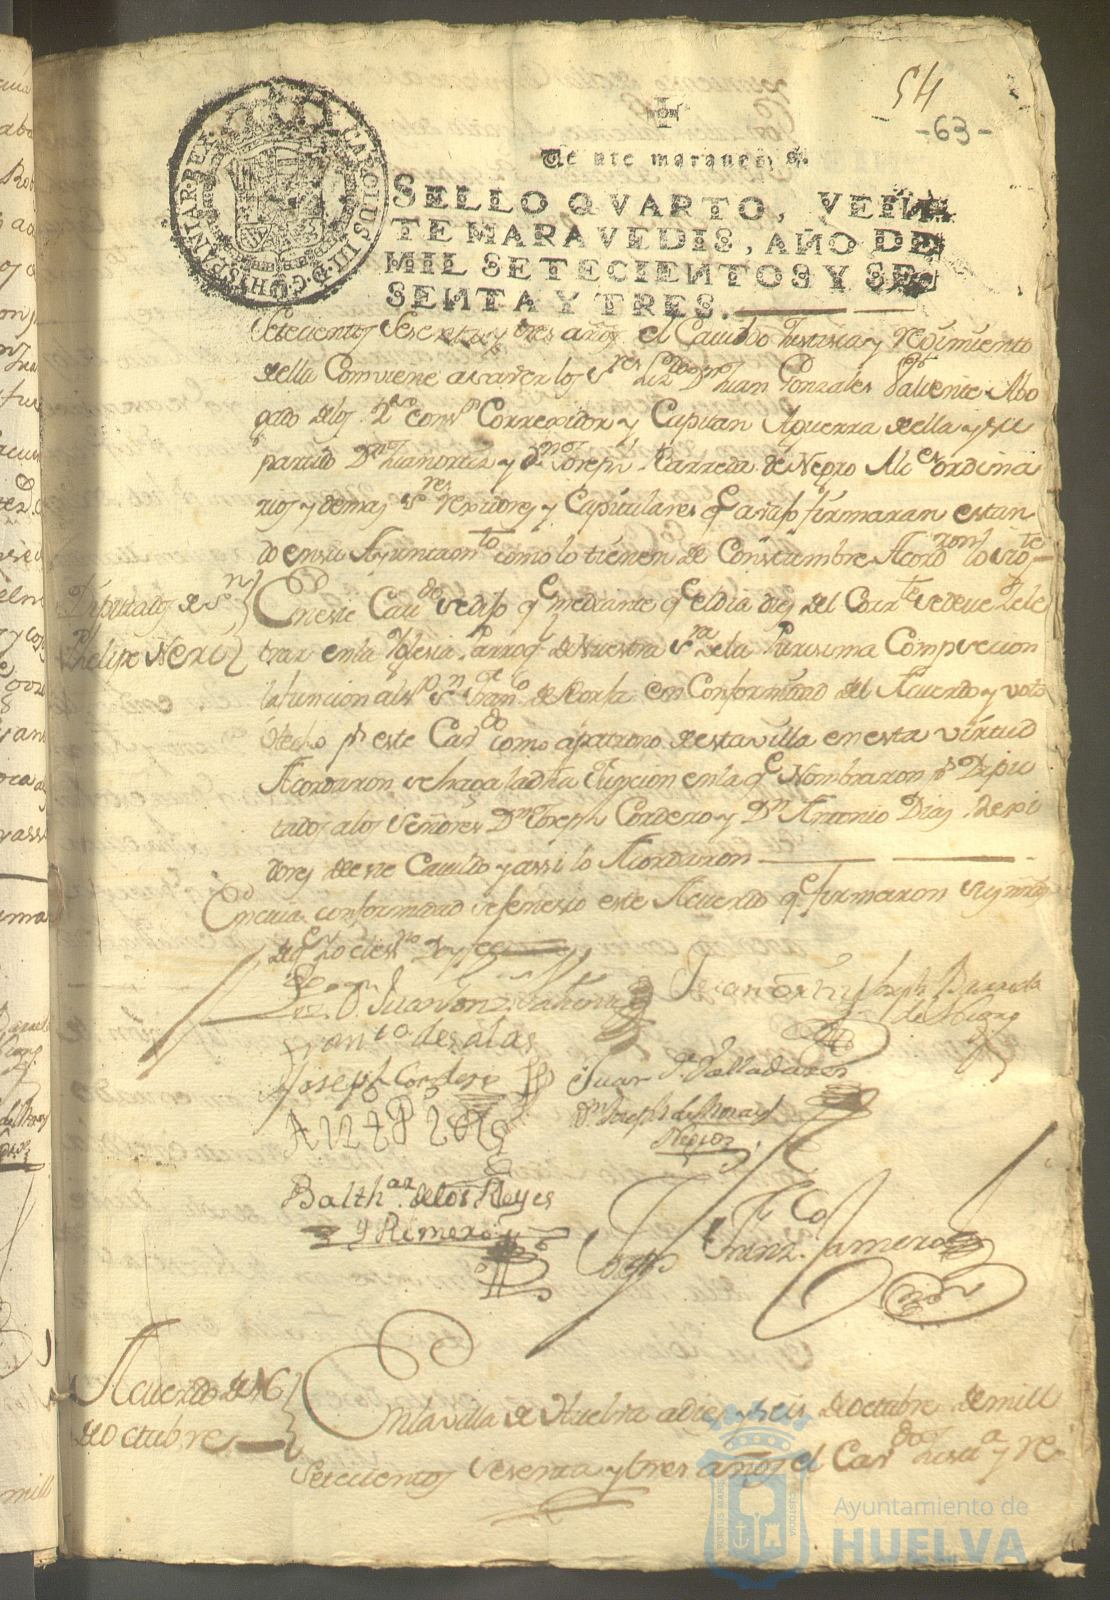 54
-63-
CAROLUS III D.G. HISPANIAR. REX
Veinte maravedis.
SELLO QVARTO, VEIN-
TE MARAVEDIS, AÑO DE
MIL SETECIENTOS Y SE-
SENTA Y TRES.
Setecientos Sesenta y tres años el Cavildo Justicia y reximiento
della Combiene a saver los Sres Lizdo Dn Juan Gonzales Valiente Abo
gado de los Rs Consos Correxidor y Capitan Aguerra della y su
partido Dn Juan ortiz y Dn Joseph Barreda de Negro Alces ordina
rios y demas Sres rexidores y Capitulares qe avajo firmaran estan
do en su Ayuntamto como lo tienen de Constumbre Acordron lo sigte
Diputados de Sn
Phelipe Neri
En este Cavdo se dijo qe mediante qe el dia dies del Corrte se deve Zele
trar en la Yglesia Parroql de Nuestra Sra de la Purissima Compsecion
la funcion al Sr Sn Franco de Borja en Conformidad del Acuerdo y voto
Hecho pr este Cavdo como a patrono de esta villa en esta virtud
Acordaron se haga la dha funcion en la qe Nombraron pr Dipu
tados a los Señores Dn Joseph Cordero y Dn Antonio Dias Rexi
dores de este Cavildo y assi lo Acordaron
En cuia conformidad se fenesio este Acuerdo qe firmaron sus mrds
de qe Yo el essno Doy fee
Lizdo Dn Juan Gonz. Valiente
Juan Ortiz
Joseph Barreda
de Negro
Franco de salas
Joseph Cordero
Juan Valladares
Dn Joseph de Mora y
Negro
Balthar de los Reyes
y Romero
Franz. Jamero
Acuerdo de 16
de octubre
En la villa de Huelva a dies y seis de octubre de mill
Setecientos Sesenta y tres años el Cavdo Justa y re
Ayuntamiento de
HUELVA
PORTUS MARIS
CUSTODIA